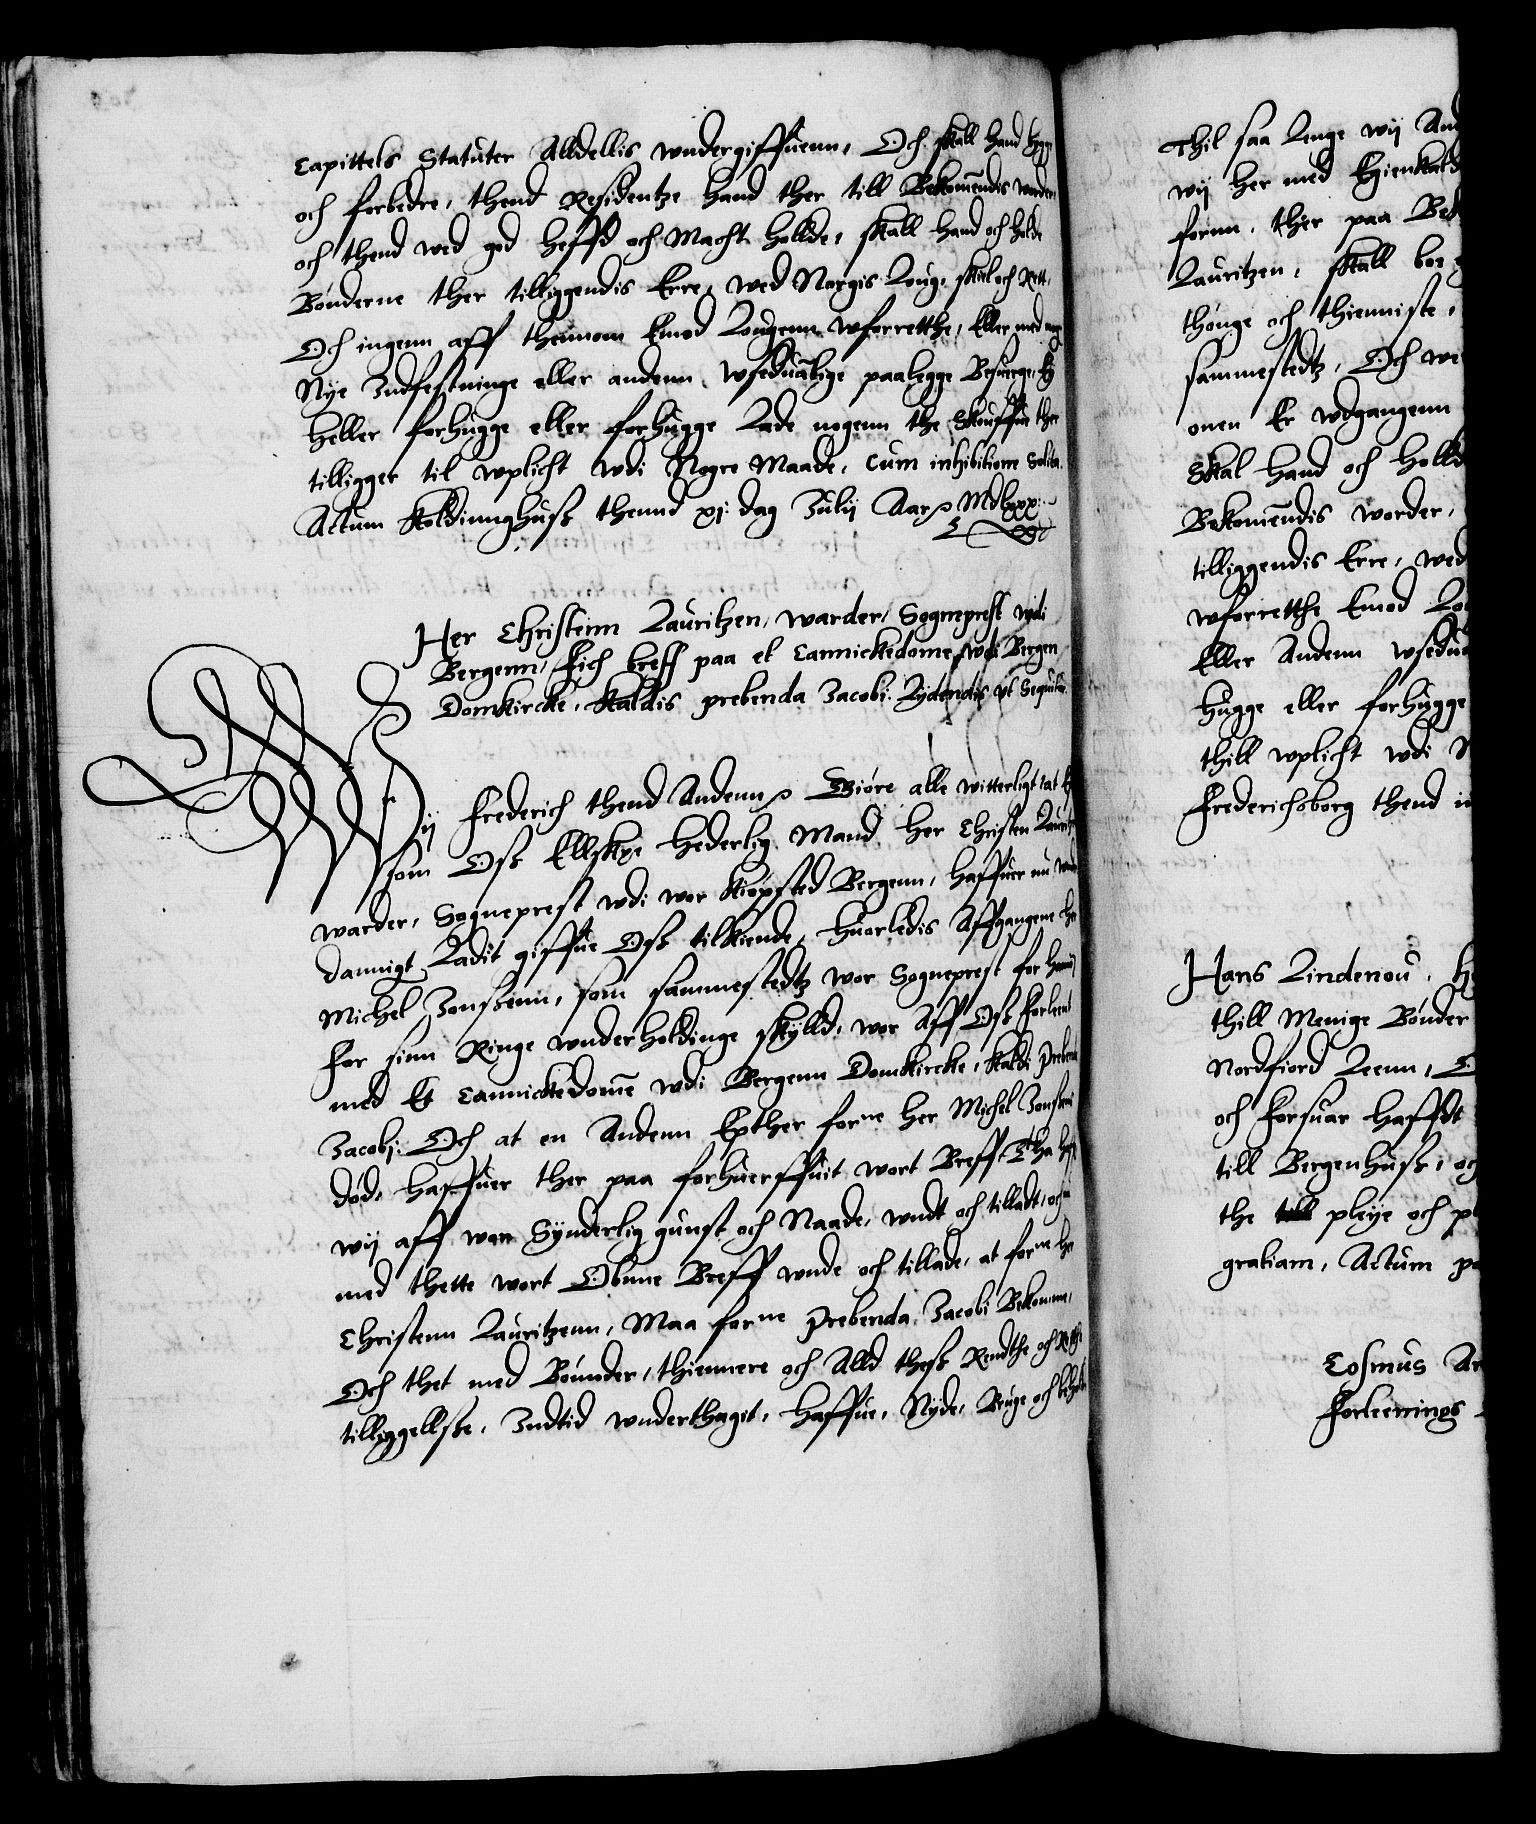 Capittels Statuter Alldellis wndergiffuenn, Och skall hand bygge
och forbedre, thend Residentze hand ther till Bekomendis worder
och thend wed god heffd och Macht hollde, skall hand och holde
Bønderne ther tilliggendis Erre, wed Norgis Loug, skiel och Rett,
Och ingenn aff thennom Emod Lougenn wforretthe, Eller med nogen
Nye Indfestninge eller andenn wseduanlige paalegge Besuerge, Ey
heller forhugge eller forhugge Lade nogenn the Skouffue ther
tilligger til wplicht wdi Nogre Maade, Cum inhibitione Solita.
Actum Koldinnghuss thennd xj dag Julij Aar Mdlxxx
Her Christenn Lauritzen, Warder, Sogneprest wdi
Bergenn, Fich breff paa et Cannickedome, wdi Bergen
Domkircke, kaldis prebenda Jacobi Lydendis ut Sequitur
Wij Frederich thend Andenn Giøre alle witterligt at
som Oss Ellskte hederlig Mand her Christen Lauritz
warder, Sogneprest wdi wor Kiøpsted Bergenn, haffuer nu
dannigt Ladit giffue Oss tilkiende, huorledis Affgangene her
Michel Jonssenn, som sammestedtz wor Sogneprest for hannem
for sinn Ringe wnderholdinge skylld, wor Aff Oss forleent
med Et Cannickedome wdi Bergenn Domkircke, kaldi Prebenda
Jacobj: Och at en Andenn Epther forne her Michel Jonssens
død, haffuer ther paa forhuerffuit wort Breff Tha haffue
wij aff wor Synderlig gunst och Naade, wndt och tilladt, och nu
med thette wort Obnne Breff wnde och tillade, at forne her
Christenn Lauritzenn, Maa forne Prebenda Jacobi Bekomme,
Och thet med Bønnder, thiennere och Alld thess Rendthe och Rette
tilliggellsse, Indtid wnderthagit, haffue, Nyde, Bruge och beholde
Thil saa Lenge wij And
wij her med Igienkald
fornn. ther paa Bek
Lauritzen, skall boe
thonge och thienniste,
sammestedtz, Och we
onen Er wdgangenn
Skal hand och holld
Bekomendis worder,
tilliggendis Erre, wed
wforretthe Emod Lo
Eller Andenn wsedua
hugge eller forhugge
thill wplicht wdi N
Frederichsborg thend
Hans Lindenou,
thill Menige Bønder
Nordfiord Leenn,
och Forsuar haffdt
till Bergenhuss, och
the till pleye och p
gratiam, Actum
Cosmus Ar
Forleenings